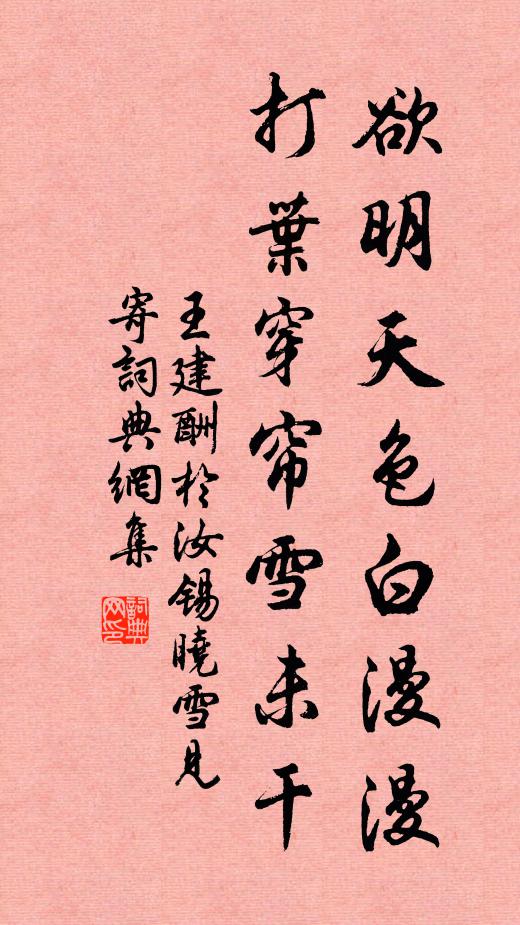 欲明天色白漫漫
打葉穿帘雪未干
王建酬於汝锡曉雪見
寄詞典網集
詞典网印